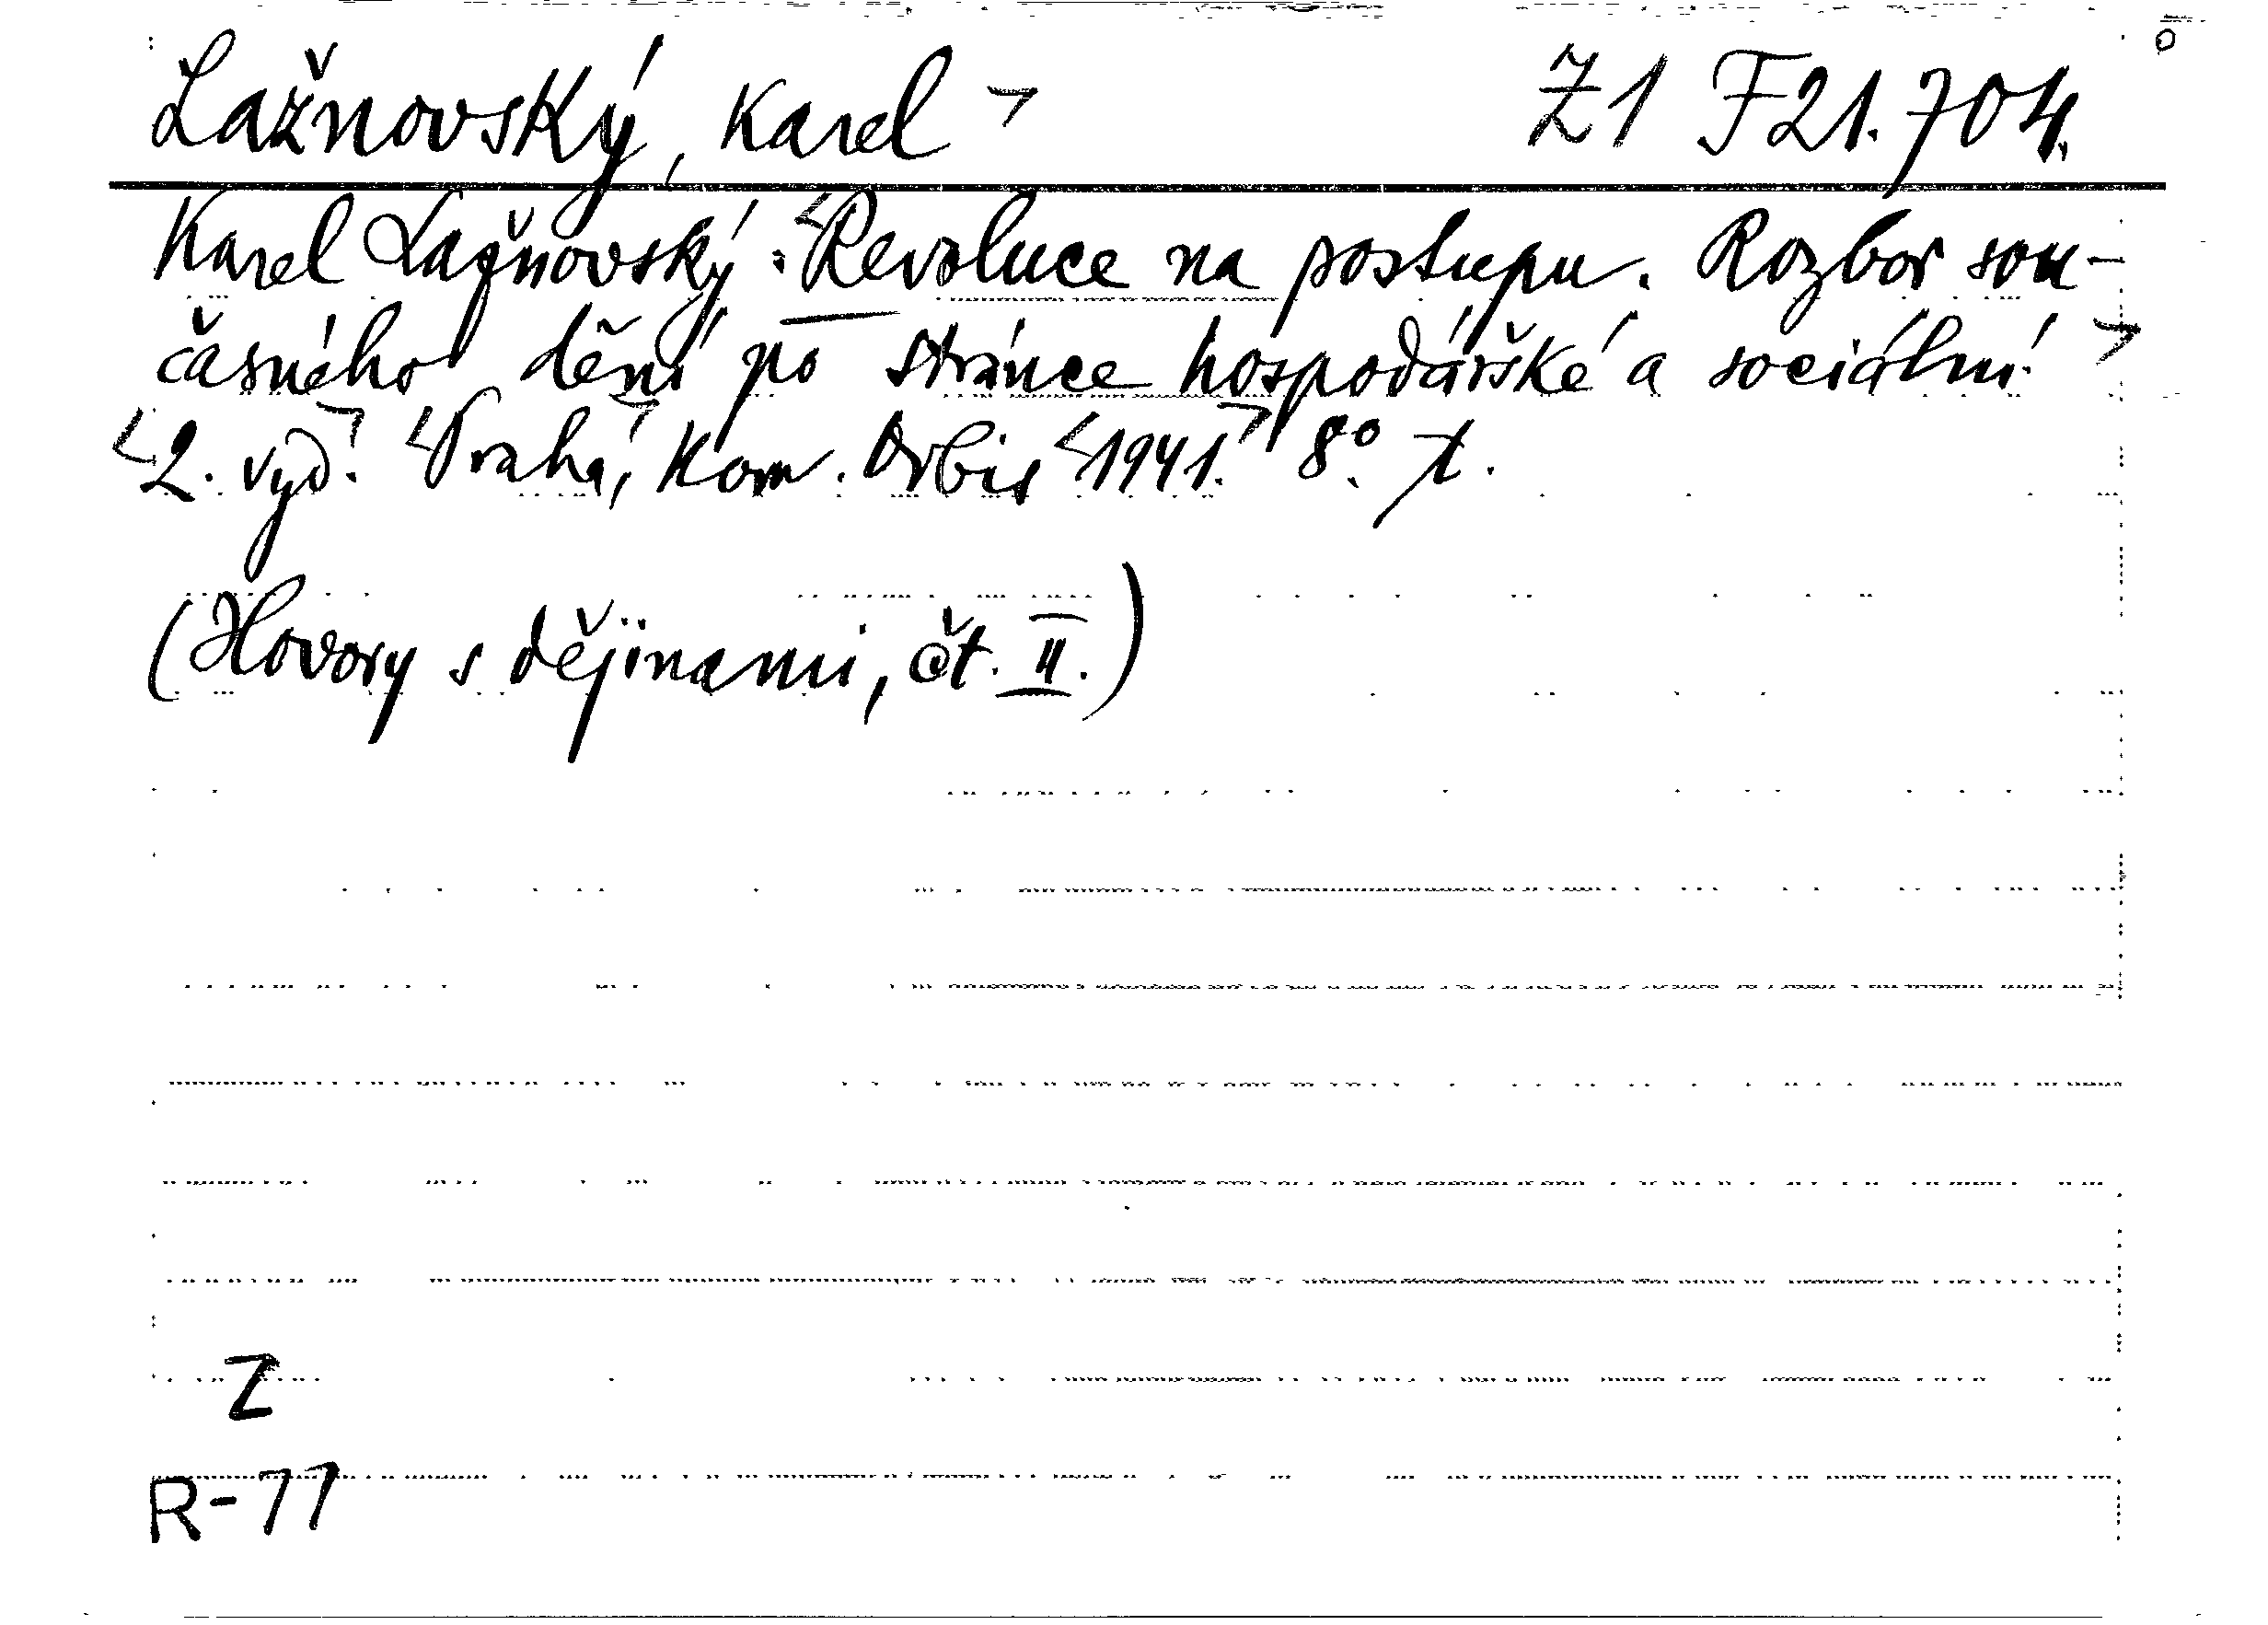 Lažnovský, Karel Z1 F21.704.
Karel Lažnovský: Revoluce na postupu. Rozbor sou-
časného dění po stránce hospodářské a sociální.
2. vyd. Praha, Kom. Orbis 1941. 8°. t.
(Hovory s dějinami, čt. II.)
Z
R-77